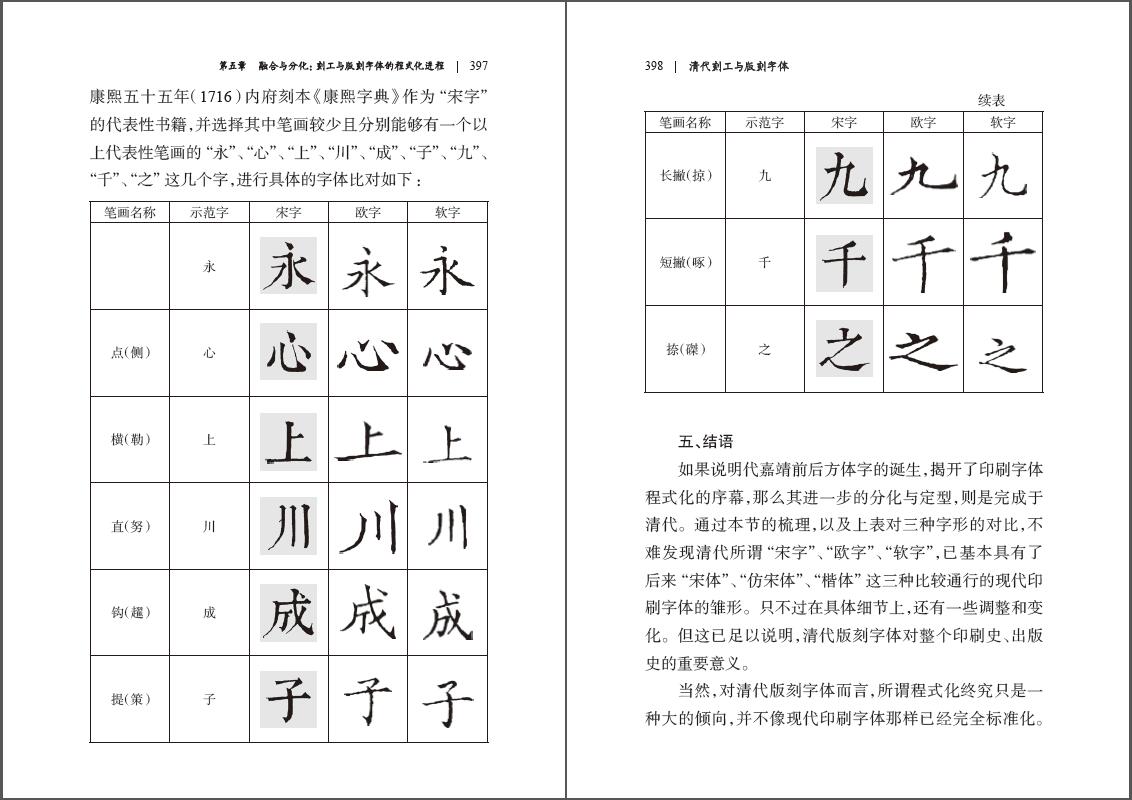 第五章 融合与分化：刻工与版刻字体的程式化进程 | 397
康熙五十五年（1716）内府刻本《康熙字典》作为“宋字”
的代表性书籍，并选择其中笔画较少且分别能够有一个以
上代表性笔画的“永”、“心”、“上”、“川”、“成”、“子”、“九”、
“千”、“之”这几个字，进行具体的字体比对如下：
笔画名称 示范字 宋字 欧字 软字
永 永 永 永
点（侧） 心 心 心 心
横（勒） 上 上 上 上
直（努） 川 川 川 川
钩（趯） 成 成 成 成
提（策） 子 子 子 子
398 | 清代刻工与版刻字体
续表
笔画名称 示范字 宋字 欧字 软字
长撇（掠） 九 九 九 九
短撇（啄） 千 千 千 千
捺（磔） 之 之 之 之
五、结语
如果说明代嘉靖前后方体字的诞生，揭开了印刷字体
程式化的序幕，那么其进一步的分化与定型，则是完成于
清代。通过本节的梳理，以及上表对三种字形的对比，不
难发现清代所谓“宋字”、“欧字”、“软字”，已基本具有了
后来“宋体”、“仿宋体”、“楷体”这三种比较通行的现代印
刷字体的雏形。只不过在具体细节上，还有一些调整和变
化。但这已足以说明，清代版刻字体对整个印刷史、出版
史的重要意义。
当然，对清代版刻字体而言，所谓程式化终究只是一
种大的倾向，并不像现代印刷字体那样已经完全标准化。